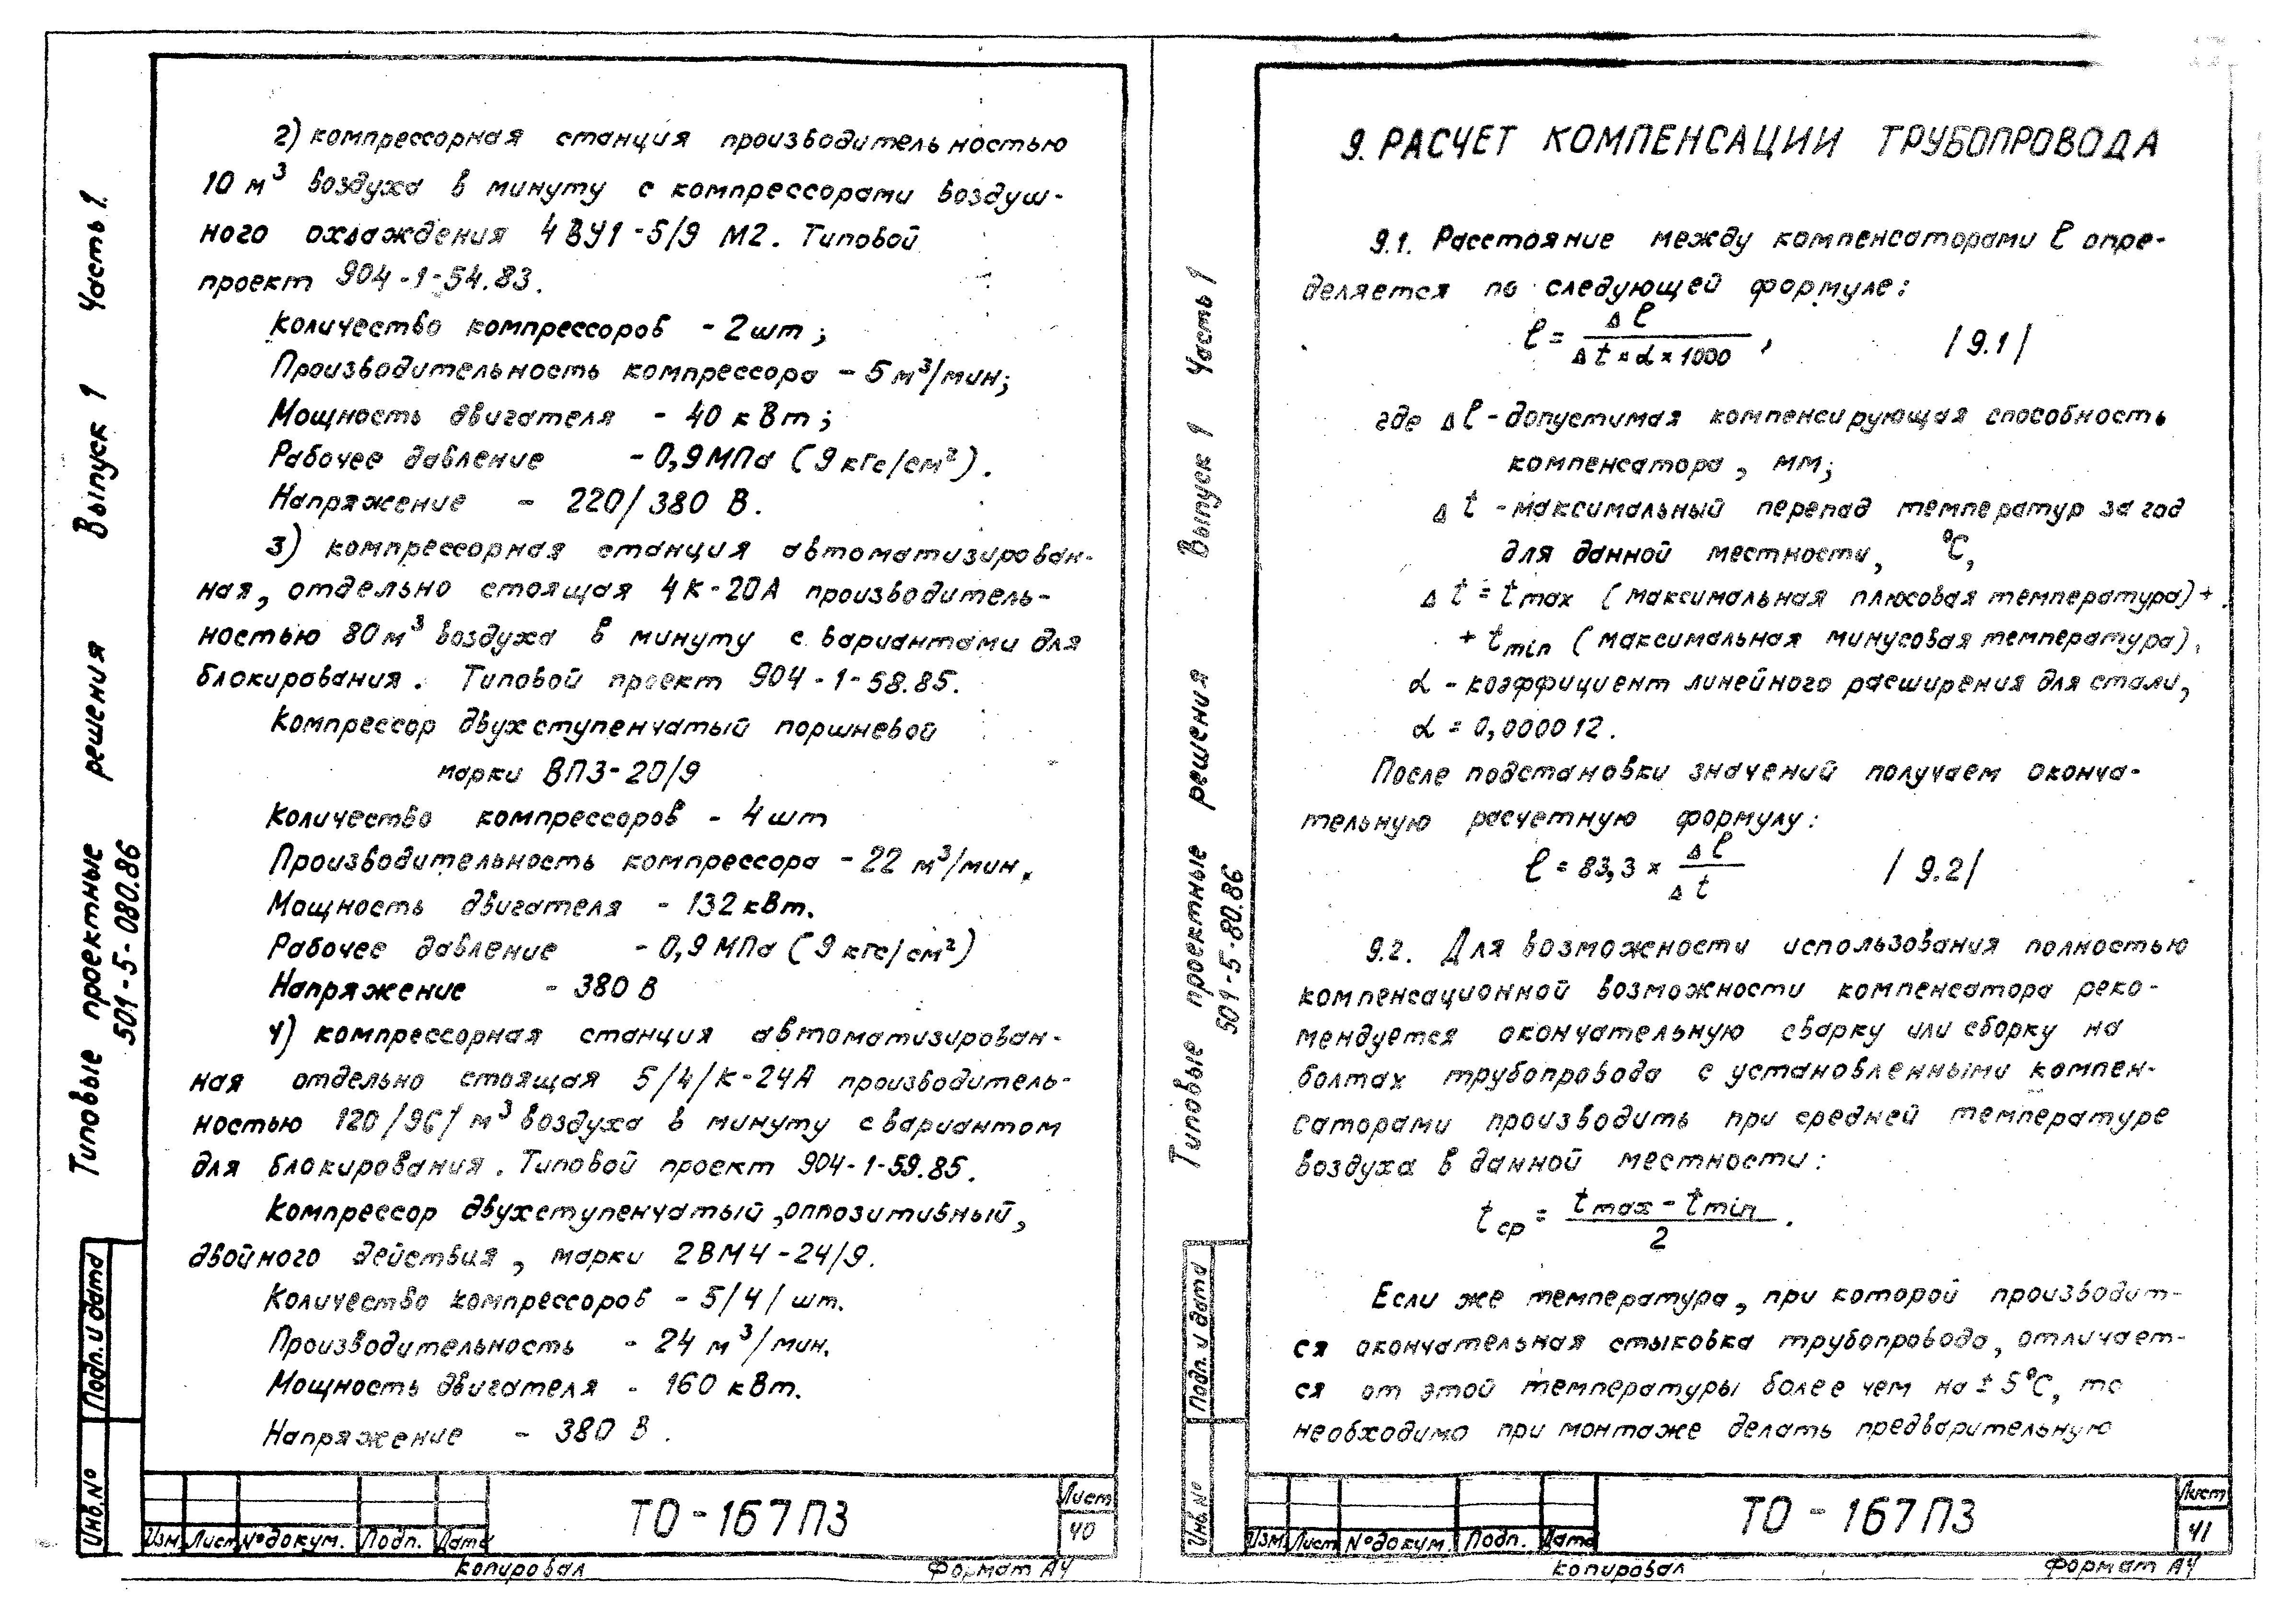 2) компрессорная станция производительностью
10 м³ воздуха в минуту с компрессорами воздуш-
ного охлаждения 4ВУ1-5/9 М2. Типовой
проект 904-1-54.83.
Количество компрессоров - 2шт;
Производительность компрессора - 5 м³/мин;
Мощность двигателя - 40 кВт;
Рабочее давление - 0,9 МПа (9 кгс/см²).
Напряжение - 220/380 В.
3) компрессорная станция автоматизирован-
ная, отдельно стоящая 4К-20А производитель-
ностью 80 м³ воздуха в минуту с вариантами для
блокирования. Типовой проект 904-1-58.85.
Компрессор двухступенчатый поршневой
марки ВП3-20/9
Количество компрессоров - 4 шт
Производительность компрессора - 22 м³/мин.
Мощность двигателя - 132 кВт.
Рабочее давление - 0,9 МПа (9 кгс/см²)
Напряжение - 380 В
4) компрессорная станция автоматизирован-
ная отдельно стоящая 5/4/К-24А производитель-
ностью 120/96/ м³ воздуха в минуту с вариантом
для блокирования. Типовой проект 904-1-59.85.
Компрессор двухступенчатый, оппозитивный,
двойного действия, марки 2ВМ4-24/9.
Количество компрессоров - 5/4/ шт.
Производительность - 24 м³/мин.
Мощность двигателя - 160 кВт.
Напряжение - 380 В.
Типовые проектные решения Выпуск 1 Часть 1.
501-5-080.86
Подп. и дата
Инв. №
Изм. Лист № докум. Подп. Дата
ТО-167ПЗ
Лист
40
Копировал Формат А4
9. РАСЧЕТ КОМПЕНСАЦИИ ТРУБОПРОВОДА
9.1. Расстояние между компенсаторами ℓ опре-
деляется по следующей формуле:
ℓ = Δℓ / Δt × α × 1000 , /9.1/
где Δℓ - допустимая компенсирующая способность
компенсатора, мм;
Δt - максимальный перепад температур за год
для данной местности, °С,
Δt = tmax (максимальная плюсовая температура) +
+ tmin (максимальная минусовая температура),
α - коэффициент линейного расширения для стали,
α = 0,000012.
После подстановки значений получаем оконча-
тельную расчетную формулу:
ℓ = 83,3 × Δℓ / Δt /9.2/
9.2. Для возможности использования полностью
компенсационной возможности компенсатора реко-
мендуется окончательную сварку или сборку на
болтах трубопровода с установленными компен-
саторами производить при средней температуре
воздуха в данной местности:
tср = tmax - tmin / 2 .
Если же температура, при которой производит-
ся окончательная стыковка трубопровода, отличает-
ся от этой температуры более чем на ± 5°С, то
необходимо при монтаже делать предварительную
Типовые проектные решения Выпуск 1 Часть 1
501-5-80.86
Подп. и дата
Инв. №
Изм. Лист № докум. Подп. Дата
ТО-167ПЗ
Лист
41
Копировал Формат А4